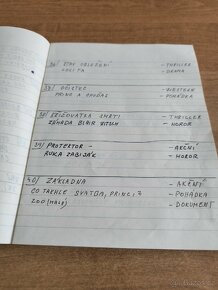 36/ STAV OBLEŽENÍ - THRILLER
LOLITA - DRAMA
37/ - WESTERN
PRINC A CHUĎAS - POHÁDKA
38/ KŘIŽOVATKA SMRTI - THRILLER
ZÁHADA BLAIR WITCH - HOROR
39/ PROTEKTOR - AKČNÍ
RUKA ZABIJÁK - HOROR
40/ ZÁKLADNA - AKČNÍ
CO TAKHLE SVATBA, PRINCI? - POHÁDKA
ZOO (MALÉ) - DOKUMENT